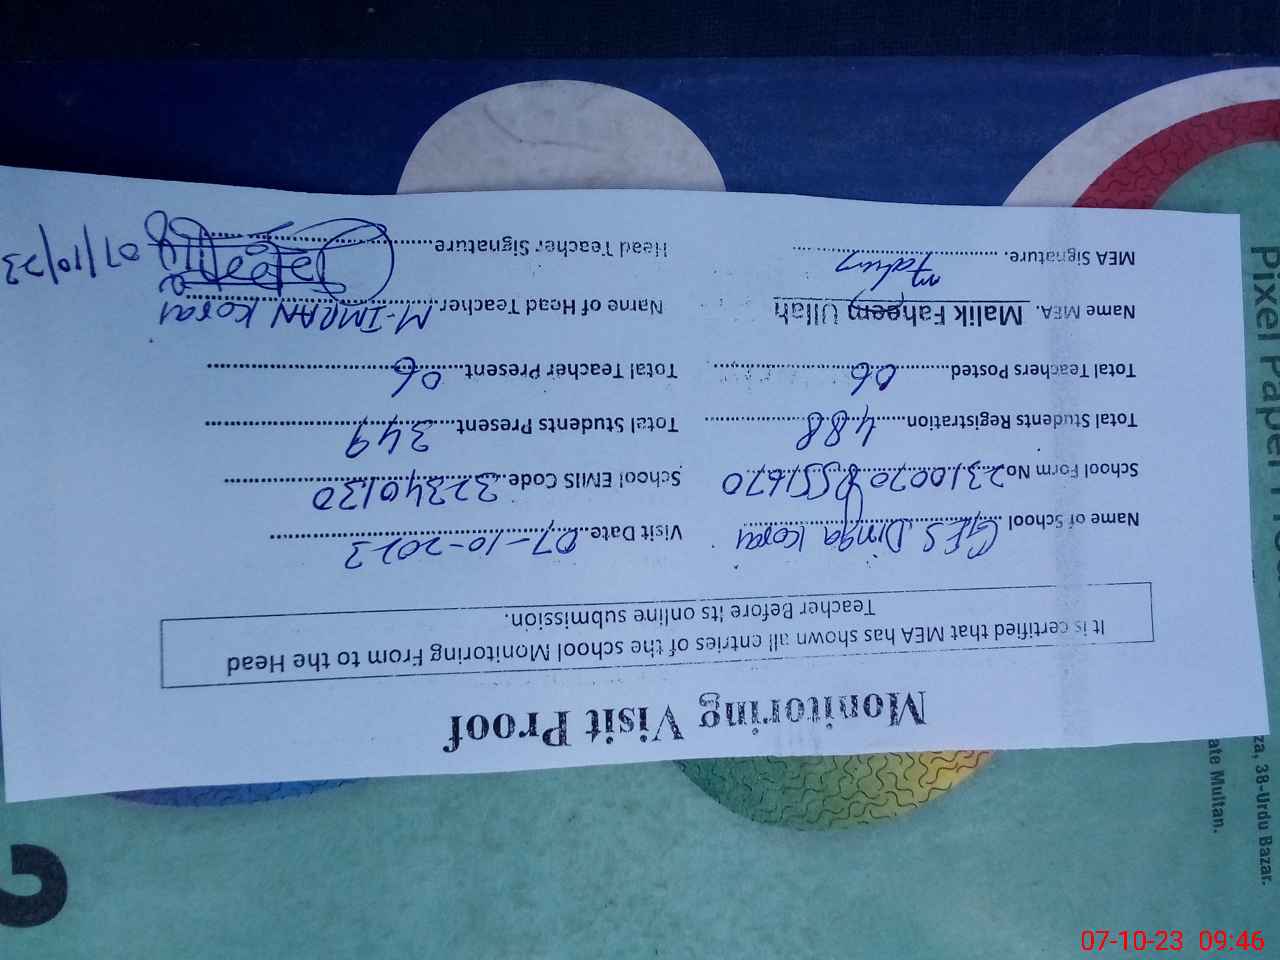 Monitoring Visit Proof
It is certified that MEA has shown all entries of the school Monitoring From to the Head
Teacher Before its online submission.
Name of School GES Dinga Korai Visit Date 07-10-2023
School Form No 23100708551670 School EMIS Code 32340130
Total Students Registration 488 Total Students Present 349
Total Teachers Posted 06 Total Teacher Present 06
Name MEA. Malik Faheem Ullah Name of Head Teacher M-IMRAN Korai
MEA Signature. Head Teacher Signature
07/10/23
Pixel Paper
za, 38-Urdu Bazar.
ate Multan.
07-10-23 09:46